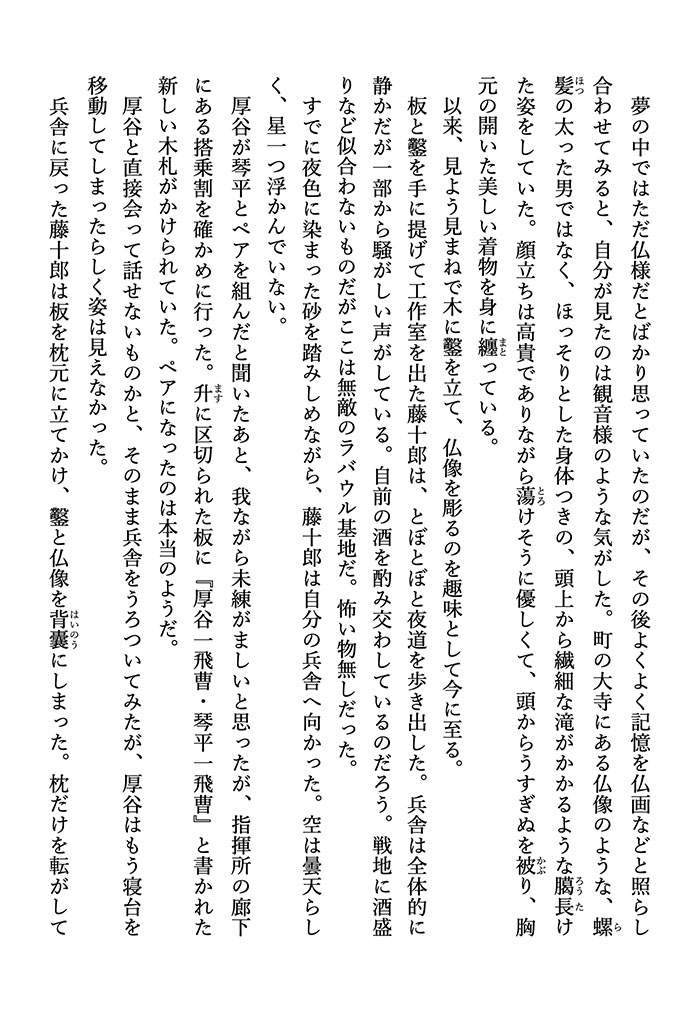 夢の中ではただ仏様だとばかり思っていたのだが、その後よくよく記憶を仏画などと照らし
合わせてみると、自分が見たのは観音様のような気がした。町の大寺にある仏像のような、螺
髪の太った男ではなく、ほっそりとした身体つきの、頭上から繊細な滝がかかるような﨟長け
た姿をしていた。顔立ちは高貴でありながら蕩けそうに優しくて、頭からうすぎぬを被り、胸
元の開いた美しい着物を身に纏っている。
　以来、見よう見まねで木に鑿を立て、仏像を彫るのを趣味として今に至る。
　板と鑿を手に提げて工作室を出た藤十郎は、とぼとぼと夜道を歩き出した。兵舎は全体的に
静かだが一部から騒がしい声がしている。自前の酒を酌み交わしているのだろう。戦地に酒盛
りなど似合わないものだがここは無敵のラバウル基地だ。怖い物無しだった。
　すでに夜色に染まった砂を踏みしめながら、藤十郎は自分の兵舎へ向かった。空は曇天らし
く、星一つ浮かんでいない。
　厚谷が琴平とペアを組んだと聞いたあと、我ながら未練がましいと思ったが、指揮所の廊下
にある搭乗割を確かめに行った。升に区切られた板に『厚谷一飛曹・琴平一飛曹』と書かれた
新しい木札がかけられていた。ペアになったのは本当のようだ。
　厚谷と直接会って話せないものかと、そのまま兵舎をうろついてみたが、厚谷はもう寝台を
移動してしまったらしく姿は見えなかった。
　兵舎に戻った藤十郎は板を枕元に立てかけ、鑿と仏像を背嚢にしまった。枕だけを転がして